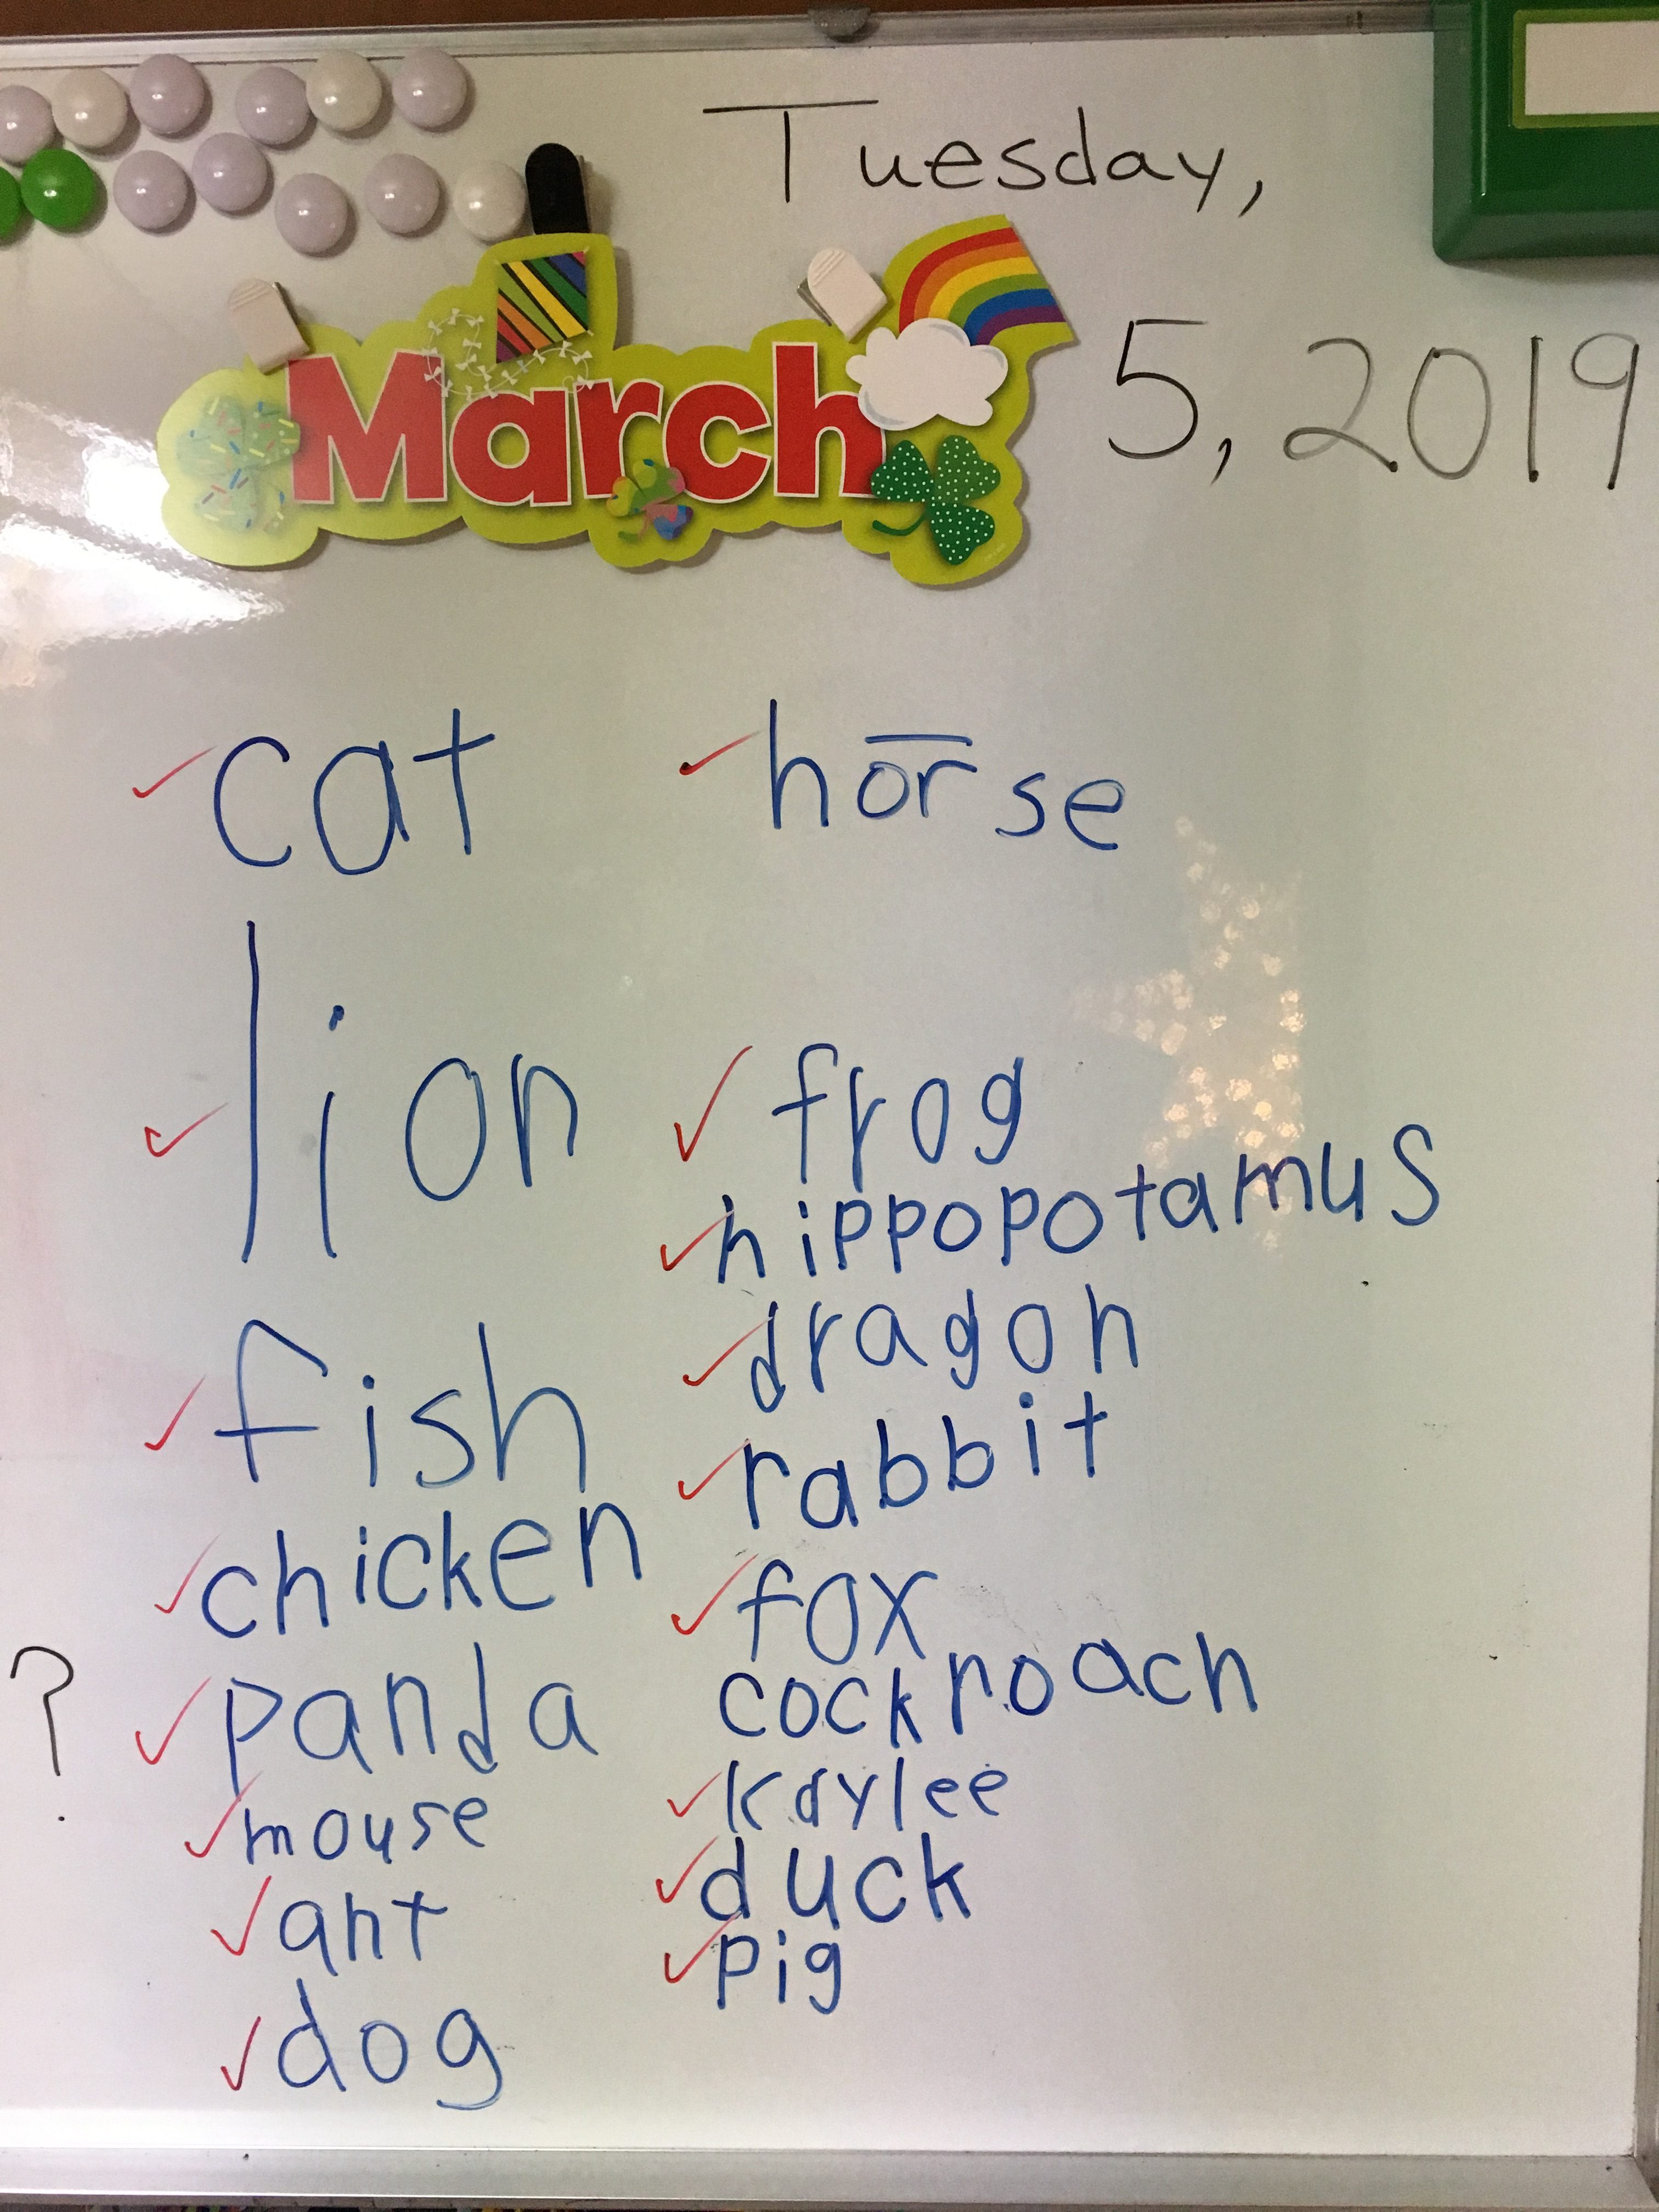 Tuesday,
March 5, 2019
✓cat
✓lion
✓fish
✓chicken
? ✓panda
✓mouse
✓ant
✓dog
✓horse
✓frog
✓hippopotamus
✓dragon
✓rabbit
✓fox
cockroach
✓kaylee
✓duck
✓pig